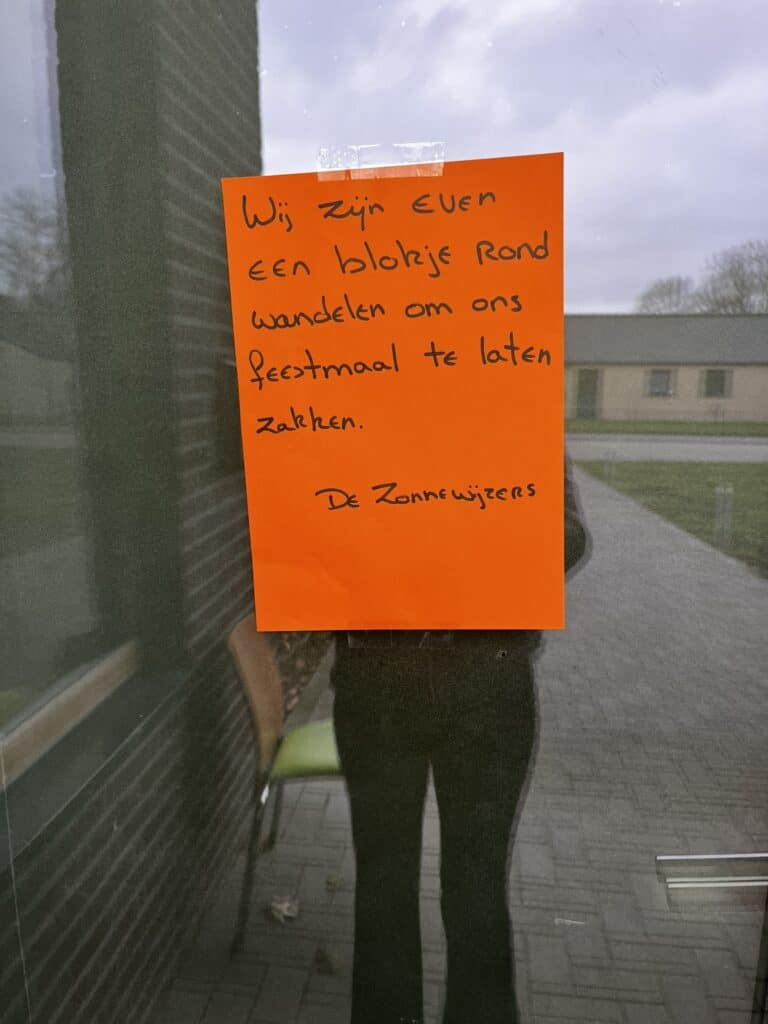 Wij zijn even
een blokje rond
wandelen om ons
feestmaal te laten
zakken.
De Zonnewijzers